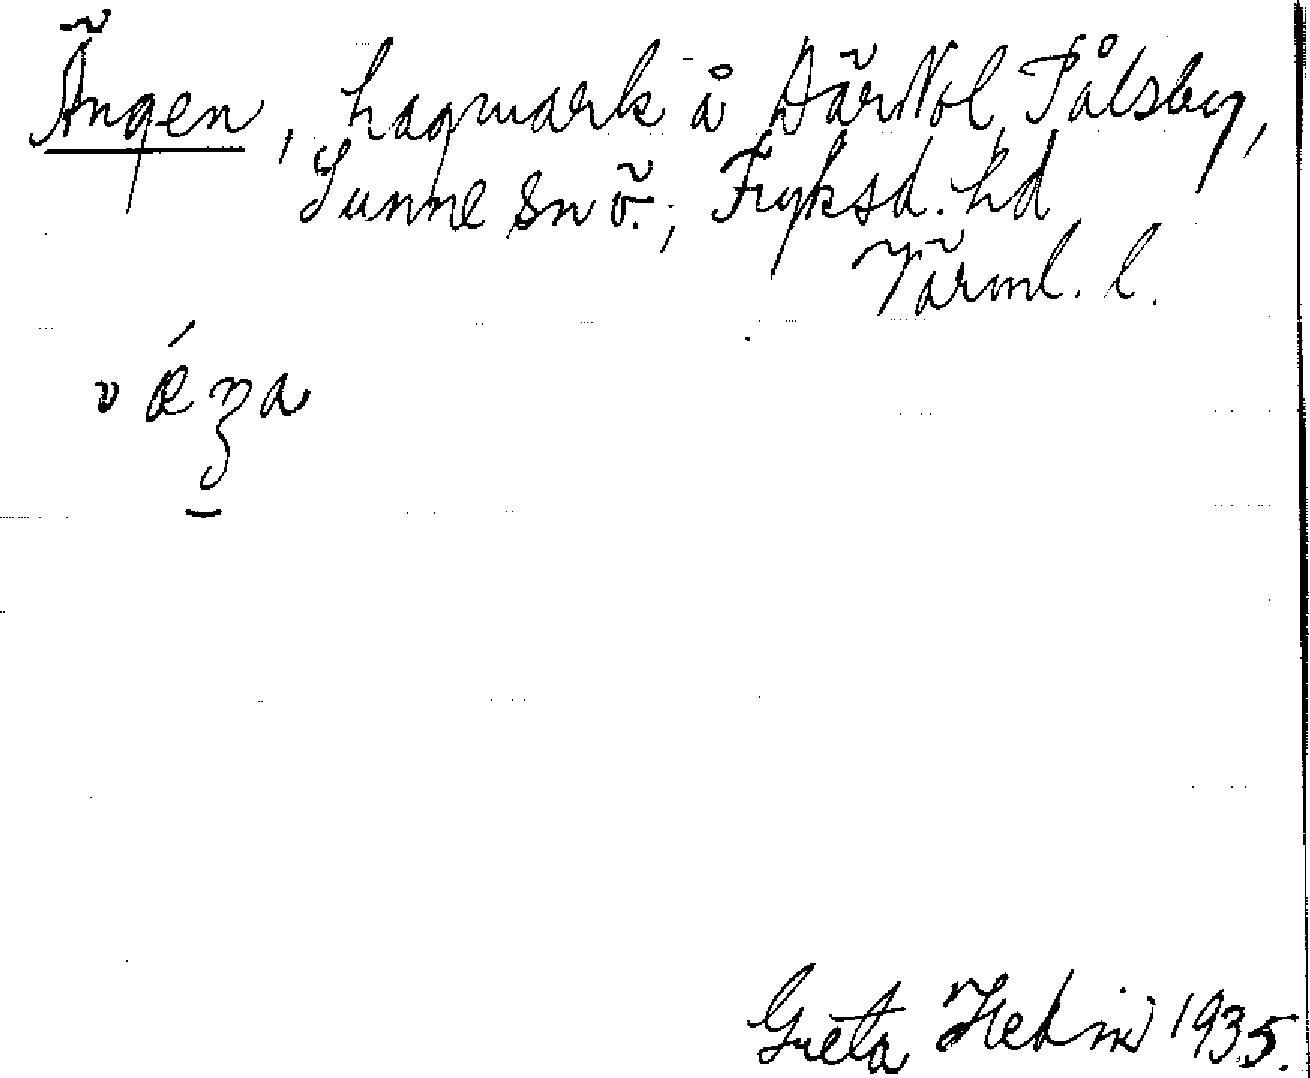 Ängen, hagmark å DärNol, Pålsby,
Sunne sn ö., Fryksd. hd
Värml. l.
Greta Hedin 1935.